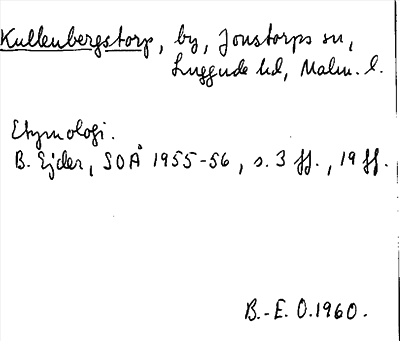 Kullenbergstorp, by, Jonstorps sn,
Luggude hd, Malm. l.
Etymologi.
B. Ejder, SOÅ 1955-56, s. 3 ff., 19 ff.
B.-E. O. 1960.